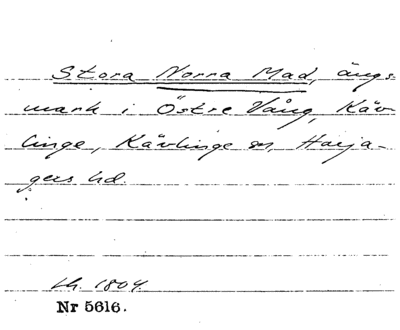 Stora Norra Mad, ängs-
mark i Östre Vång, Käv-
linge, Kävlinge sn, Harja-
gers hd.
Lh. 1804.
Nr 5616.